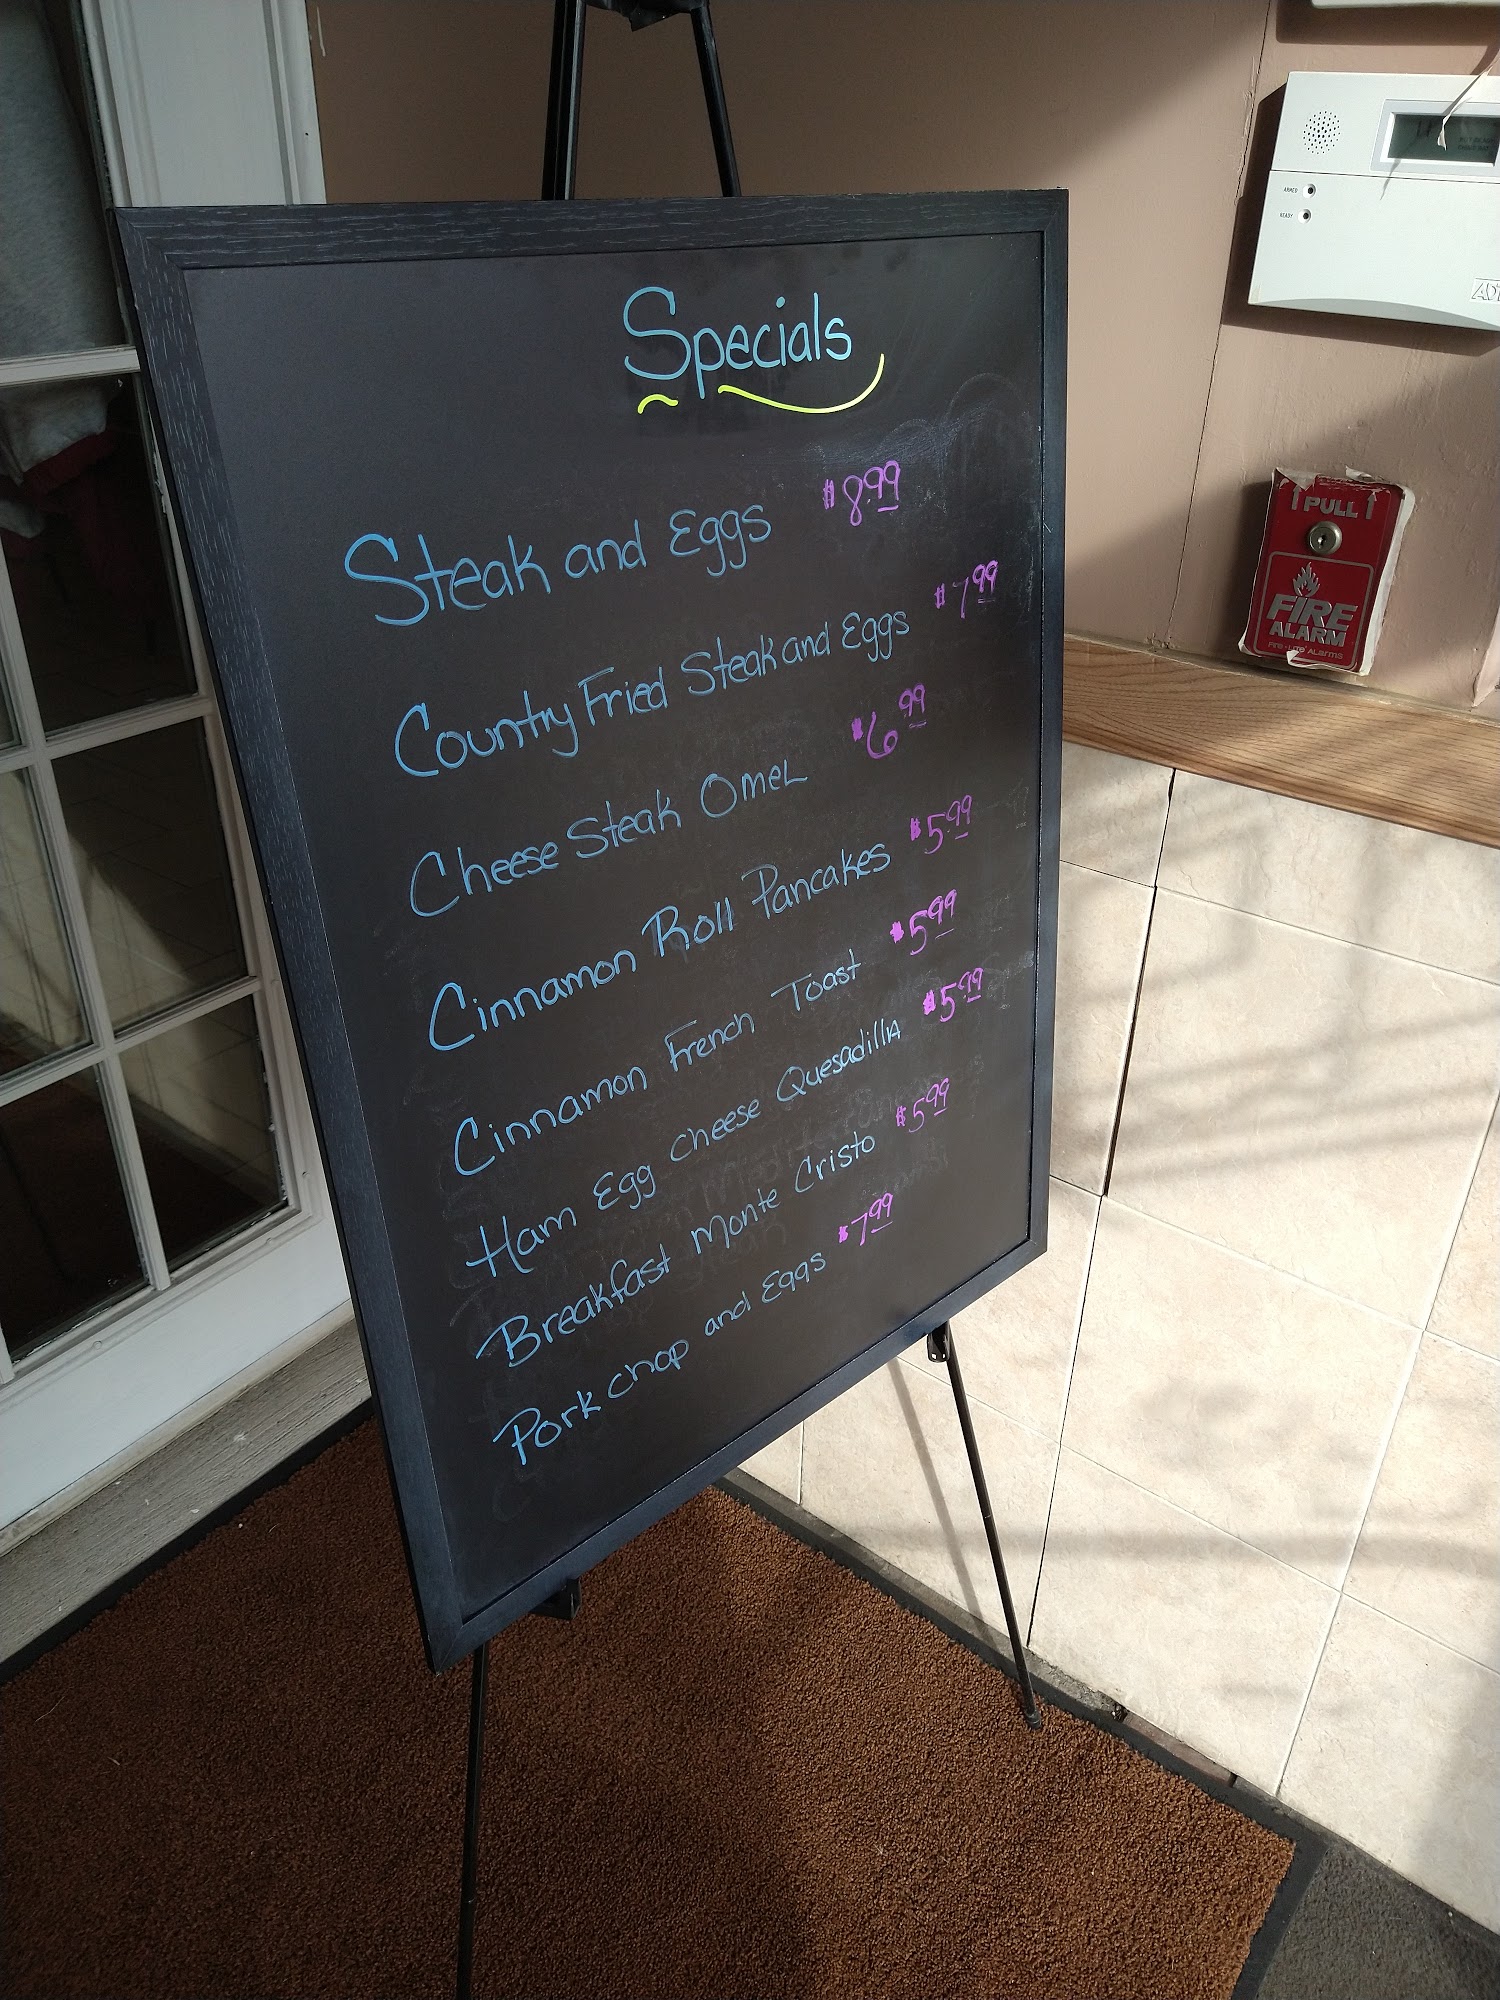 Specials
Steak and Eggs $8.99
Country Fried Steak and Eggs $7.99
Cheese Steak Omel $6.99
Cinnamon Roll Pancakes $5.99
Cinnamon French Toast $5.99
Ham Egg Cheese Quesadilla $5.99
Breakfast Monte Cristo $5.99
Pork chop and Eggs $7.99
ARMED
READY
ADT
PULL
FIRE
ALARM
Fire-Lite Alarms